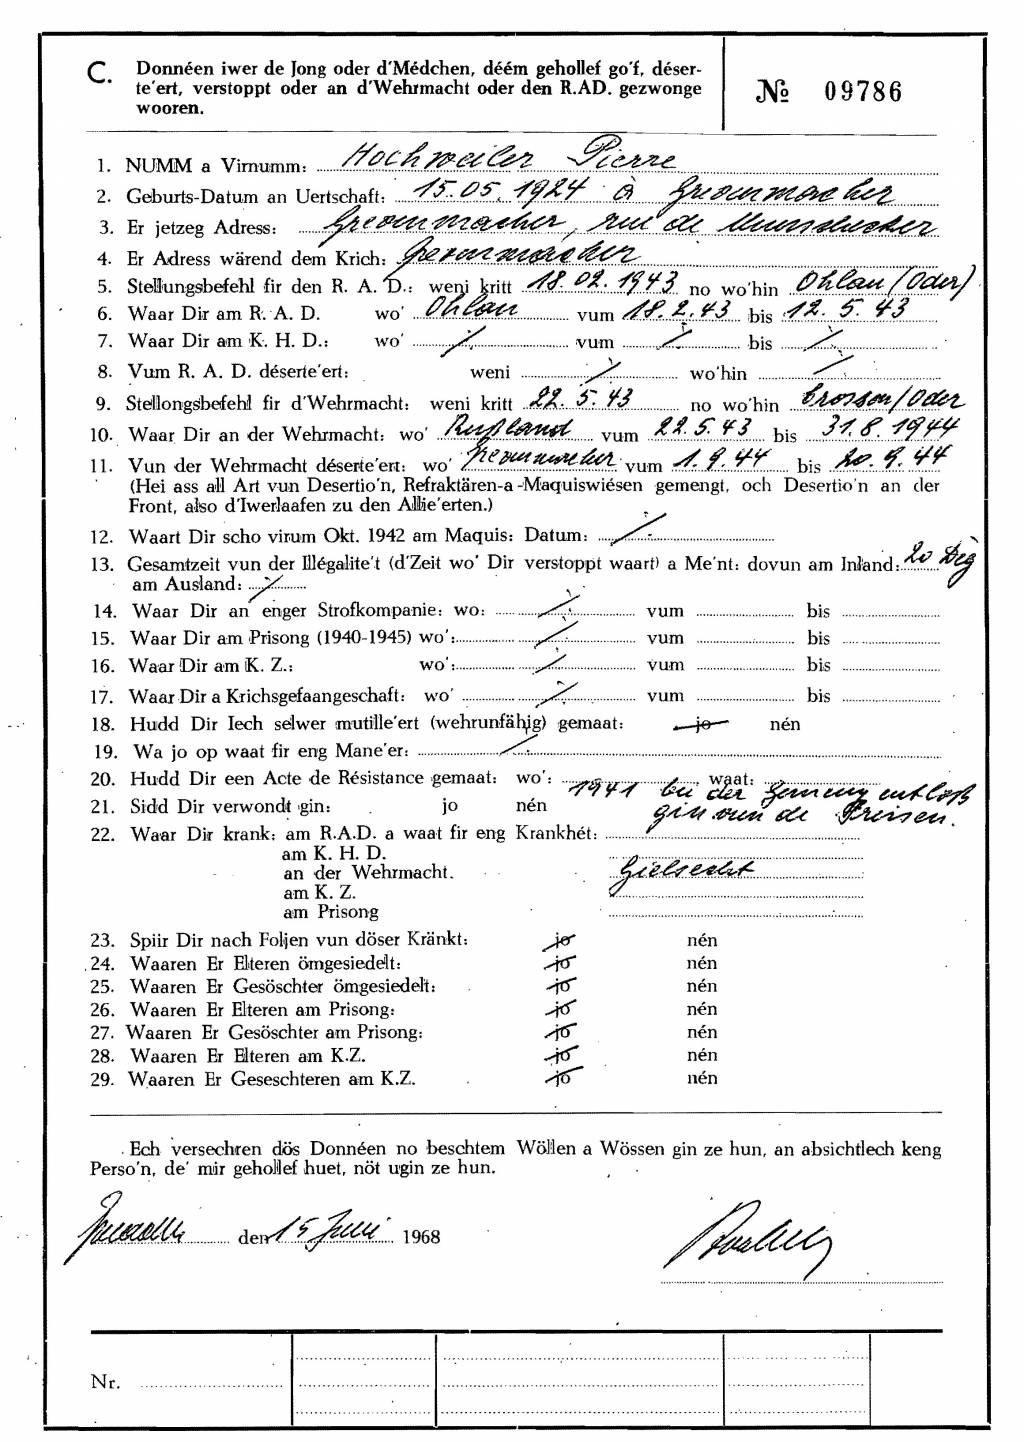 C. Donnéen iwer de Jong oder d'Médchen, déém gehollef go'f, déser-
te'ert, verstoppt oder an d'Wehrmacht oder den R.AD. gezwonge
wooren.
№ 09786
1. NUMM a Virnumm: Hochweiler Pierre
2. Geburts-Datum an Uertschaft: 15.05.1924 à Grevenmacher
3. Er jetzeg Adress: Grevenmacher, rue de Munschecker
4. Er Adress wärend dem Krich: Grevenmacher
5. Stellungsbefehl fir den R. A. D.: weni kritt 18.02.1943 no wo'hin Ohlau/(Oder)
6. Waar Dir am R. A. D. wo' Ohlau vum 18.2.43 bis 12.5.43
7. Waar Dir am K. H. D.: wo' / vum / bis /
8. Vum R. A. D. déserte'ert: weni / wo'hin /
9. Stellongsbefehl fir d'Wehrmacht: weni kritt 22.5.43 no wo'hin Crossen/Oder
10. Waar Dir an der Wehrmacht: wo' Rußland vum 22.5.43 bis 31.8.1944
11. Vun der Wehrmacht déserte'ert: wo' Grevenmacher vum 1.9.44 bis 20.9.44
(Hei ass all Art vun Desertio'n, Refraktären-a-Maquiswiésen gemengt, och Desertio'n an der
Front, also d'Iwerlaafen zu den Allie'erten.)
12. Waart Dir scho virum Okt. 1942 am Maquis: Datum: /
13. Gesamtzeit vun der Illégalite't (d'Zeit wo' Dir verstoppt waart) a Me'nt: dovun am Inland: 20 Deg
am Ausland: /
14. Waar Dir an enger Strofkompanie: wo: / vum bis
15. Waar Dir am Prisong (1940-1945) wo': / vum bis
16. Waar Dir am K. Z.: wo': / vum bis
17. Waar Dir a Krichsgefaangeschaft: wo' / vum bis
18. Hudd Dir Iech selwer mutille'ert (wehrunfähig) gemaat: jo nén
19. Wa jo op waat fir eng Mane'er: /
20. Hudd Dir een Acte de Résistance gemaat: wo': waat:
1941 bei der Gemeng entloß
21. Sidd Dir verwondt gin: jo nén
gin vun de Preisen.
22. Waar Dir krank: am R.A.D. a waat fir eng Krankhét:
am K. H. D.
an der Wehrmacht. Gielsecht
am K. Z.
am Prisong
23. Spiir Dir nach Foljen vun döser Kränkt: jo nén
24. Waaren Er Elteren ömgesiedelt: jo nén
25. Waaren Er Gesöschter ömgesiedelt: jo nén
26. Waaren Er Elteren am Prisong: jo nén
27. Waaren Er Gesöschter am Prisong: jo nén
28. Waaren Er Elteren am K.Z. jo nén
29. Waaren Er Geseschteren am K.Z. jo nén
Ech versechren dös Donnéen no beschtem Wöllen a Wössen gin ze hun, an absichtlech keng
Perso'n, de' mir gehollef huet, nöt ugin ze hun.
den 15 Juni 1968
Nr.